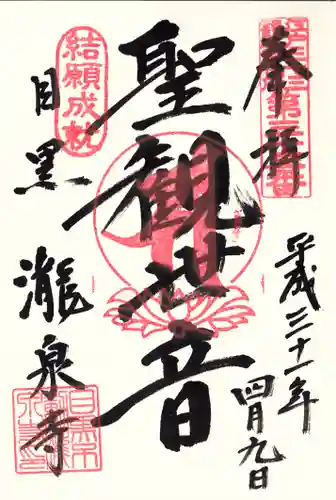 奉拝
平成三十一年
四月九日
聖観世音
結願成就
目黒
瀧泉寺